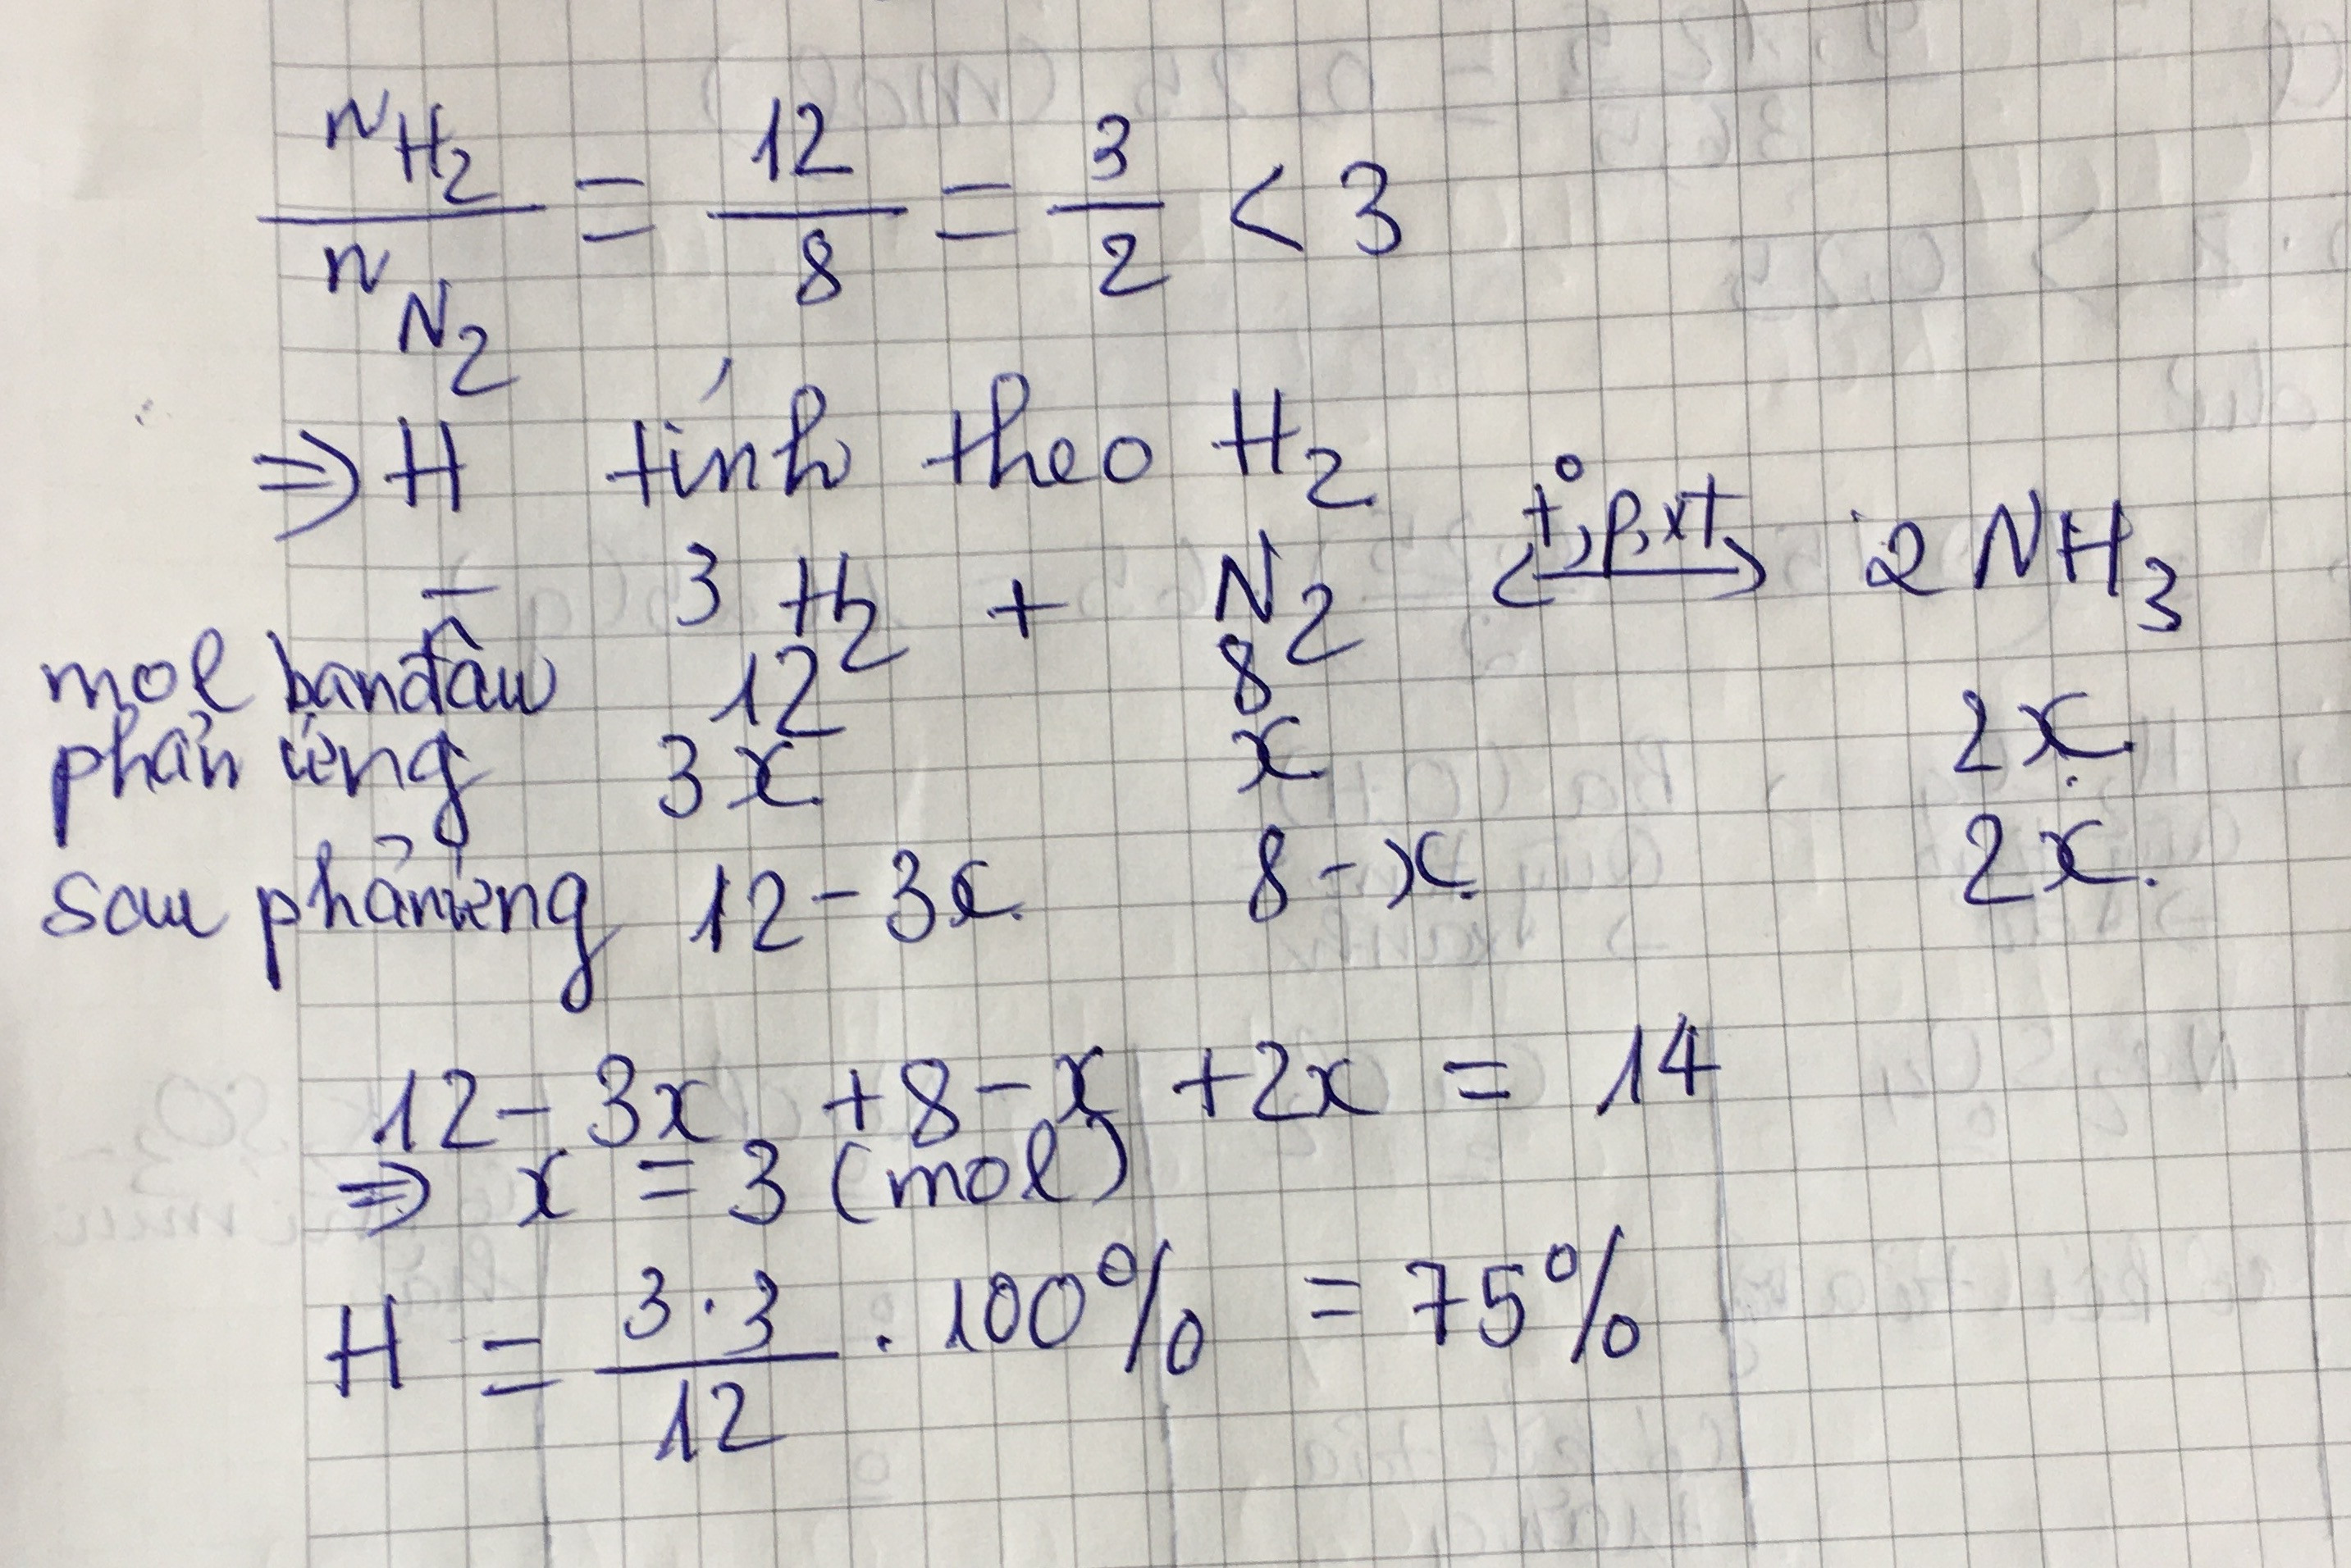 nH₂ / nN₂ = 12 / 8 = 3 / 2 < 3
⇒ H tính theo H₂
3 H₂ + N₂ ⇄ (t°, p, xt) 2 NH₃
mol ban đầu 12 8
phản ứng 3x x 2x
sau phản ứng 12 - 3x 8 - x 2x.
12 - 3x + 8 - x + 2x = 14
⇒ x = 3 (mol)
H = 3 . 3 / 12 . 100% = 75%